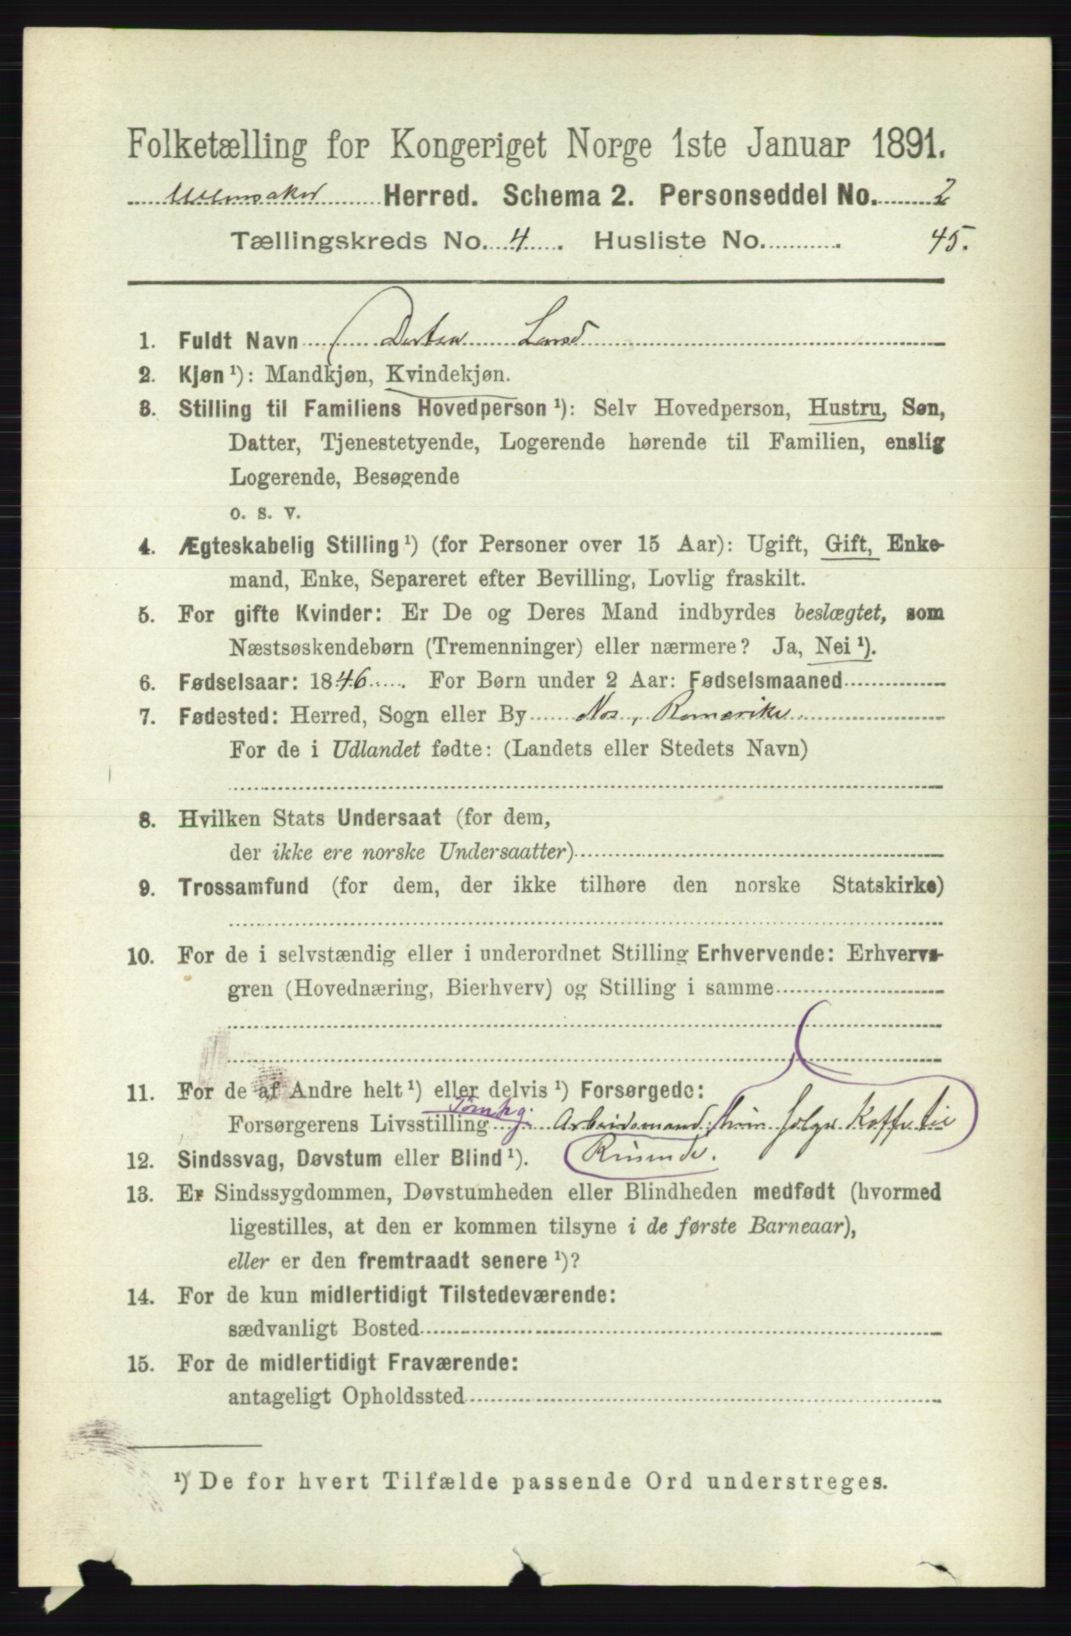 Folketælling for Kongeriget Norge 1ste Januar 1891.
Ullensaker Herred. Schema 2. Personseddel No. 2
Tællingskreds No. 4. Husliste No. 45.
1. Fuldt Navn Dortea Larsd
2. Kjøn ¹): Mandkjøn, Kvindekjøn.
3. Stilling til Familiens Hovedperson ¹): Selv Hovedperson, Hustru, Søn,
Datter, Tjenestetyende, Logerende hørende til Familien, enslig
Logerende, Besøgende
o. s. v.
4. Ægteskabelig Stilling ¹) (for Personer over 15 Aar): Ugift, Gift, Enke-
mand, Enke, Separeret efter Bevilling, Lovlig fraskilt.
5. For gifte Kvinder: Er De og Deres Mand indbyrdes beslægtet, som
Næstsøskendebørn (Tremenninger) eller nærmere? Ja, Nei ¹).
6. Fødselsaar: 1846. For Børn under 2 Aar: Fødselsmaaned
7. Fødested: Herred, Sogn eller By Næs, Romerike
For de i Udlandet fødte: (Landets eller Stedets Navn)
8. Hvilken Stats Undersaat (for dem,
der ikke ere norske Undersaatter)
9. Trossamfund (for dem, der ikke tilhøre den norske Statskirke)
10. For de i selvstændig eller i underordnet Stilling Erhvervende: Erhvervs-
gren (Hovednæring, Bierhverv) og Stilling i samme
11. For de af Andre helt ¹) eller delvis ¹) Forsørgede:
Forsørgerens Livsstilling Arbeidsmand, sælger Kaffe til
12. Sindssvag, Døvstum eller Blind ¹). Reisende.
13. Er Sindssygdommen, Døvstumheden eller Blindheden medfødt (hvormed
ligestilles, at den er kommen tilsyne i de første Barneaar),
eller er den fremtraadt senere ¹)?
14. For de kun midlertidigt Tilstedeværende:
sædvanligt Bosted
15. For de midlertidigt Fraværende:
antageligt Opholdssted
¹) De for hvert Tilfælde passende Ord understreges.